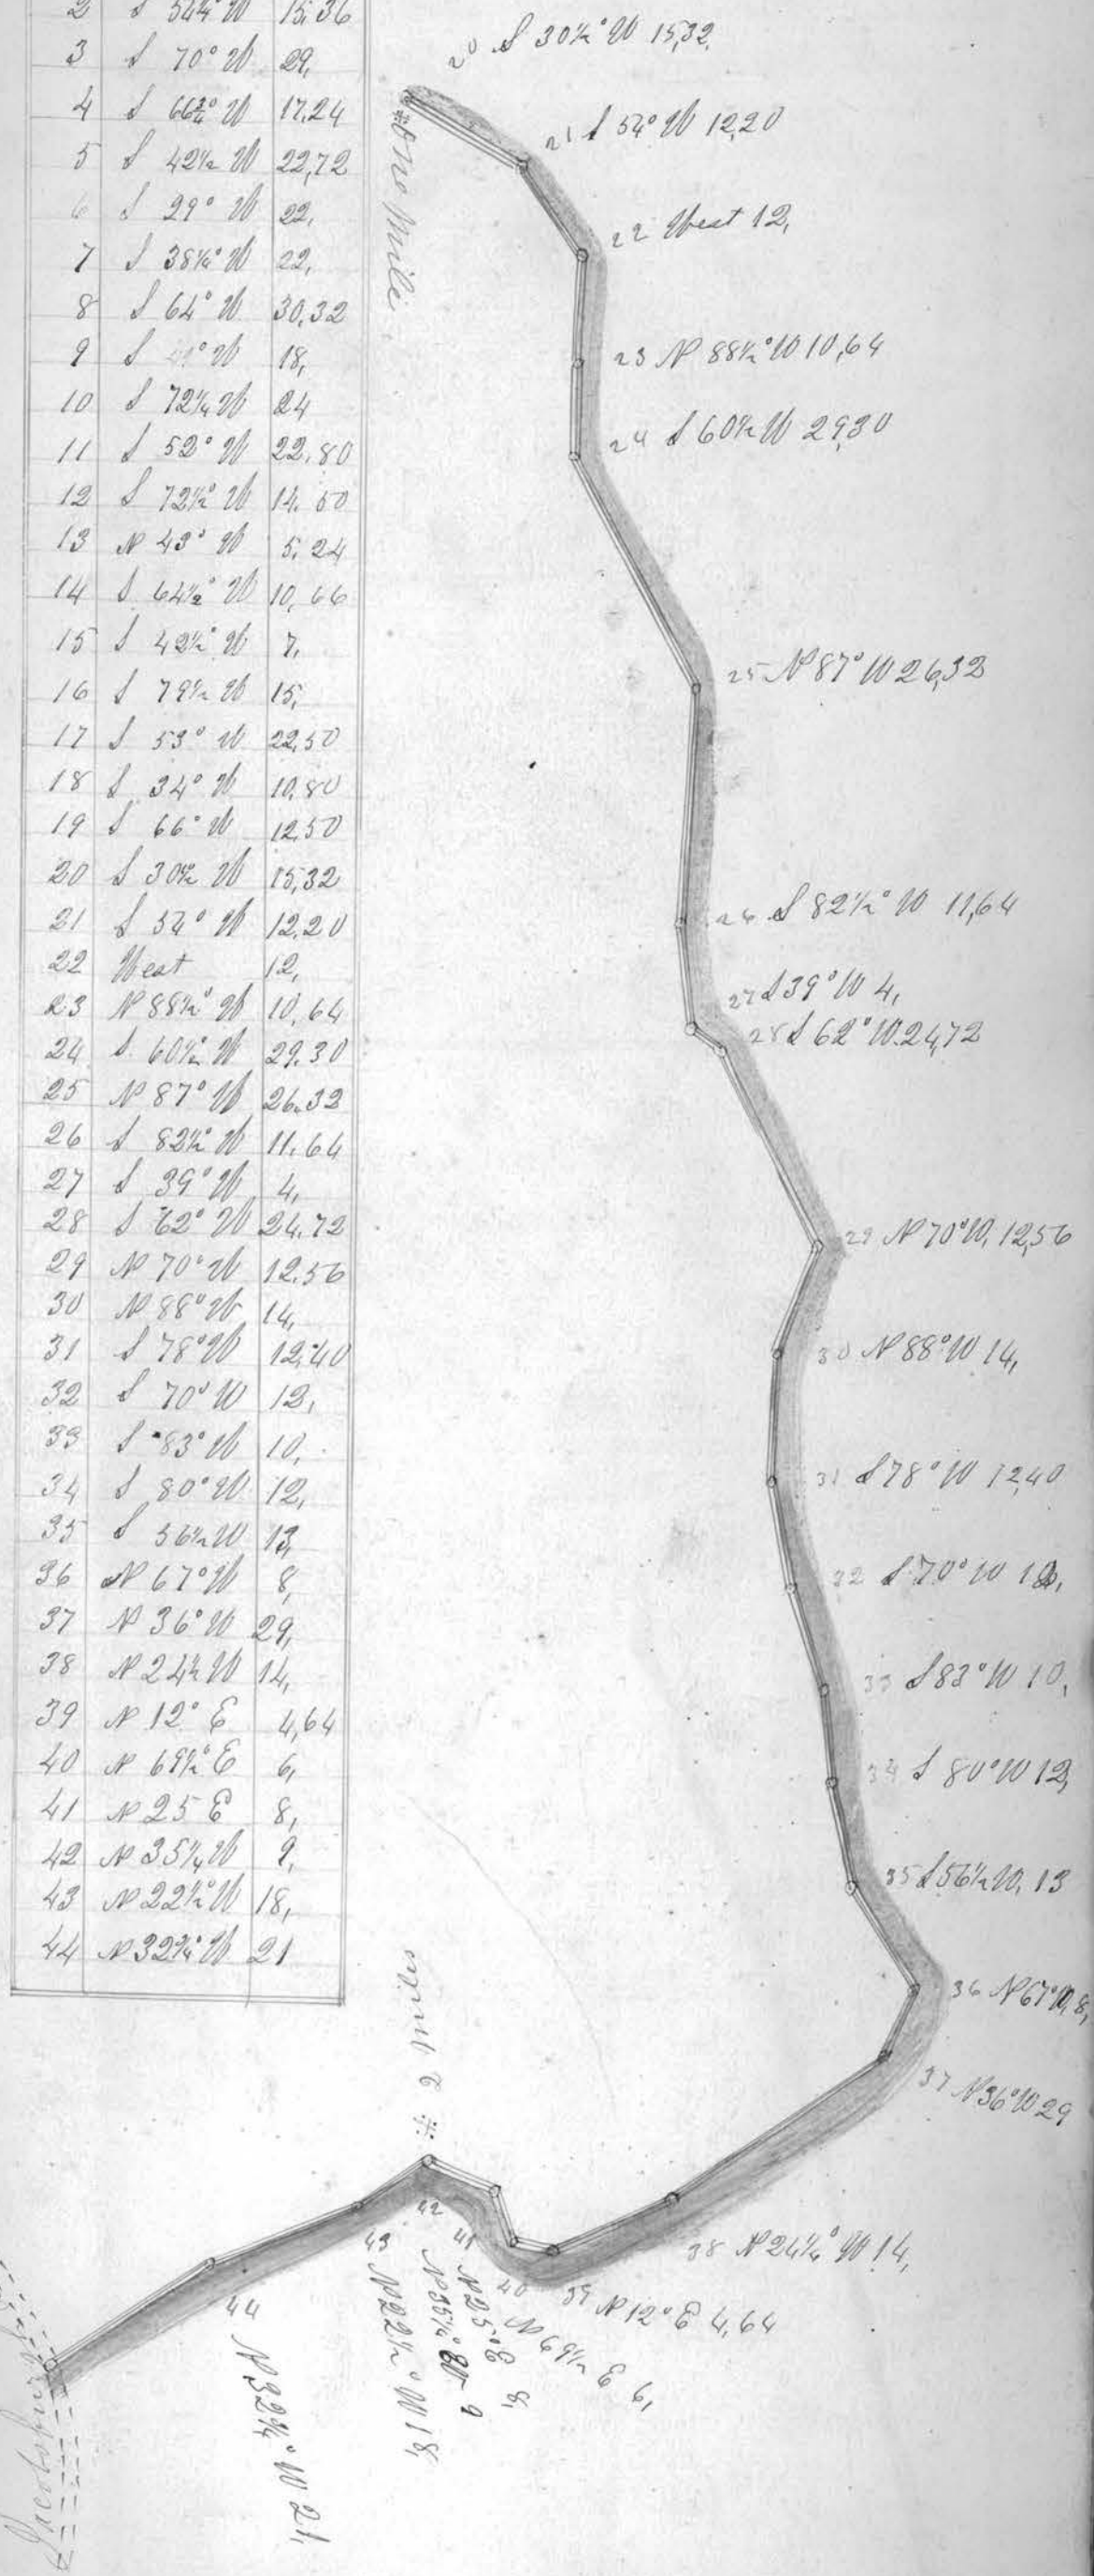 2 S 54¼° W 15,36
3 S 70° W 29,
4 S 66¾° W 17,24
5 S 42½ W 22,72
6 S 29° W 22,
7 S 38¼° W 22,
8 S 64° W 30,32
9 S W 18,
10 S 72¼ W 24
11 S 52° W 22,80
12 S 72½° W 14,50
13 N 43° W 5,24
14 S 64½° W 10,66
15 S 42½° W 7,
16 S 79½ W 15,
17 S 53° W 22,50
18 S 34° W 10,80
19 S 66° W 12,50
20 S 30½ W 15,32
21 S 54° W 12,20
22 West 12,
23 N 88½° W 10,64
24 S 60½° W 29,30
25 N 87° W 26,32
26 S 82½° W 11,64
27 S 39° W 4,
28 S 62° W 24,72
29 N 70° W 12,56
30 N 88° W 14,
31 S 78° W 12,40
32 S 70° W 12,
33 S 83° W 10,
34 S 80° W 12,
35 S 56½ W 13,
36 N 67° W 8,
37 N 36° W 29,
38 N 24½ W 14,
39 N 12° E 4,64
40 N 69½° E 6,
41 N 25 E 8,
42 N 35¼ W 9,
43 N 22½° W 18,
44 N 32¾° W 21
20 S 30½° W 15,32
One Mile
21 S 54° W 12,20
22 West 12,
23 N 88½° W 10,64
24 S 60½ W 29,30
25 N 87° W 26,32
26 S 82½° W 11,64
27 S 39° W 4,
28 S 62° W 24,72
29 N 70° W, 12,56
30 N 88° W 14,
31 S 78° W 12,40
32 S 70° W 12,
33 S 83° W 10,
34 S 80° W 12,
35 S 56½ W, 13
36 N 67° W, 8,
37 N 36° W 29
2 Miles
38 N 24½° W 14,
39 N 12° E 4,64
40 N 69½ E 6,
41 N 25° E 8,
42 N 35¼° W 9
43 N 22½° W 18,
44 N 32¾° W 21,